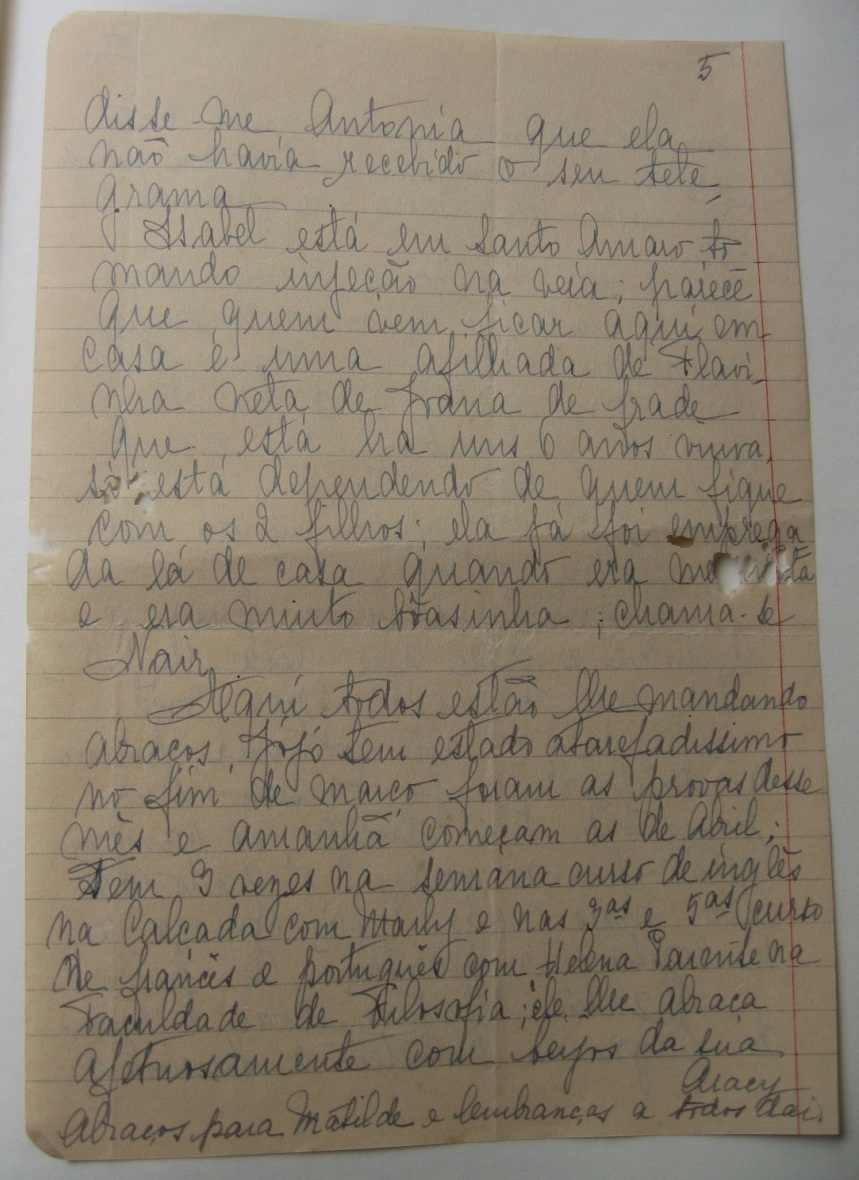 5
disse-me Antonia que ela
não havia recebido o seu tele
grama
Isabel está em Santo Amaro to
mando injeção na veia; parece
que quem vem ficar aqui em
casa é uma afilhada de Flavi-
nha neta de Joana de frade
que está ha uns 6 anos viuva,
só está dependendo de quem fique
com os 2 filhos; ela já foi emprega
da lá de casa quando era
e era muito boasinha; chama-se
Nair.
Aqui todos estão lhe mandando
abraços, Jójó tem estado atarefadissimo
no fim de março foram as provas desse
mês e amanhã começam as de Abril;
Tem 3 vezes na semana curso de inglês
na Calçada com Marly e nas 3as e 5as curso
de francês e português com Helena Parente na
Faculdade de Filosofia; ele lhe abraça
Afetuosamente com beijos da sua
Aracy
Abraços para Matilde e lembranças a todos dai.